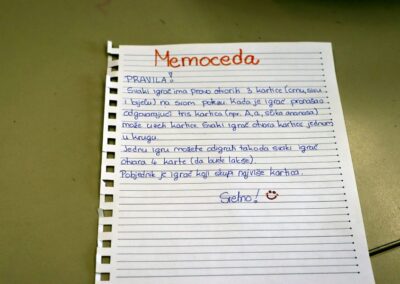 Memoceda
PRAVILA!
Svaki igrač ima pravo otvoriti 3 kartice (crnu, sivu
i bijelu) na svom potezu. Kada je igrač pronašao
odgovarajući tris kartica (npr. A, a, slika ananasa)
može uzeti kartice. Svaki igrač otvara kartice jednom
u krugu.
Jednu igru možete odigrati tako da svaki igrač
otvara 4 karte (da bude lakše).
Pobjednik je igrač koji skupi najviše kartica.
Sretno!